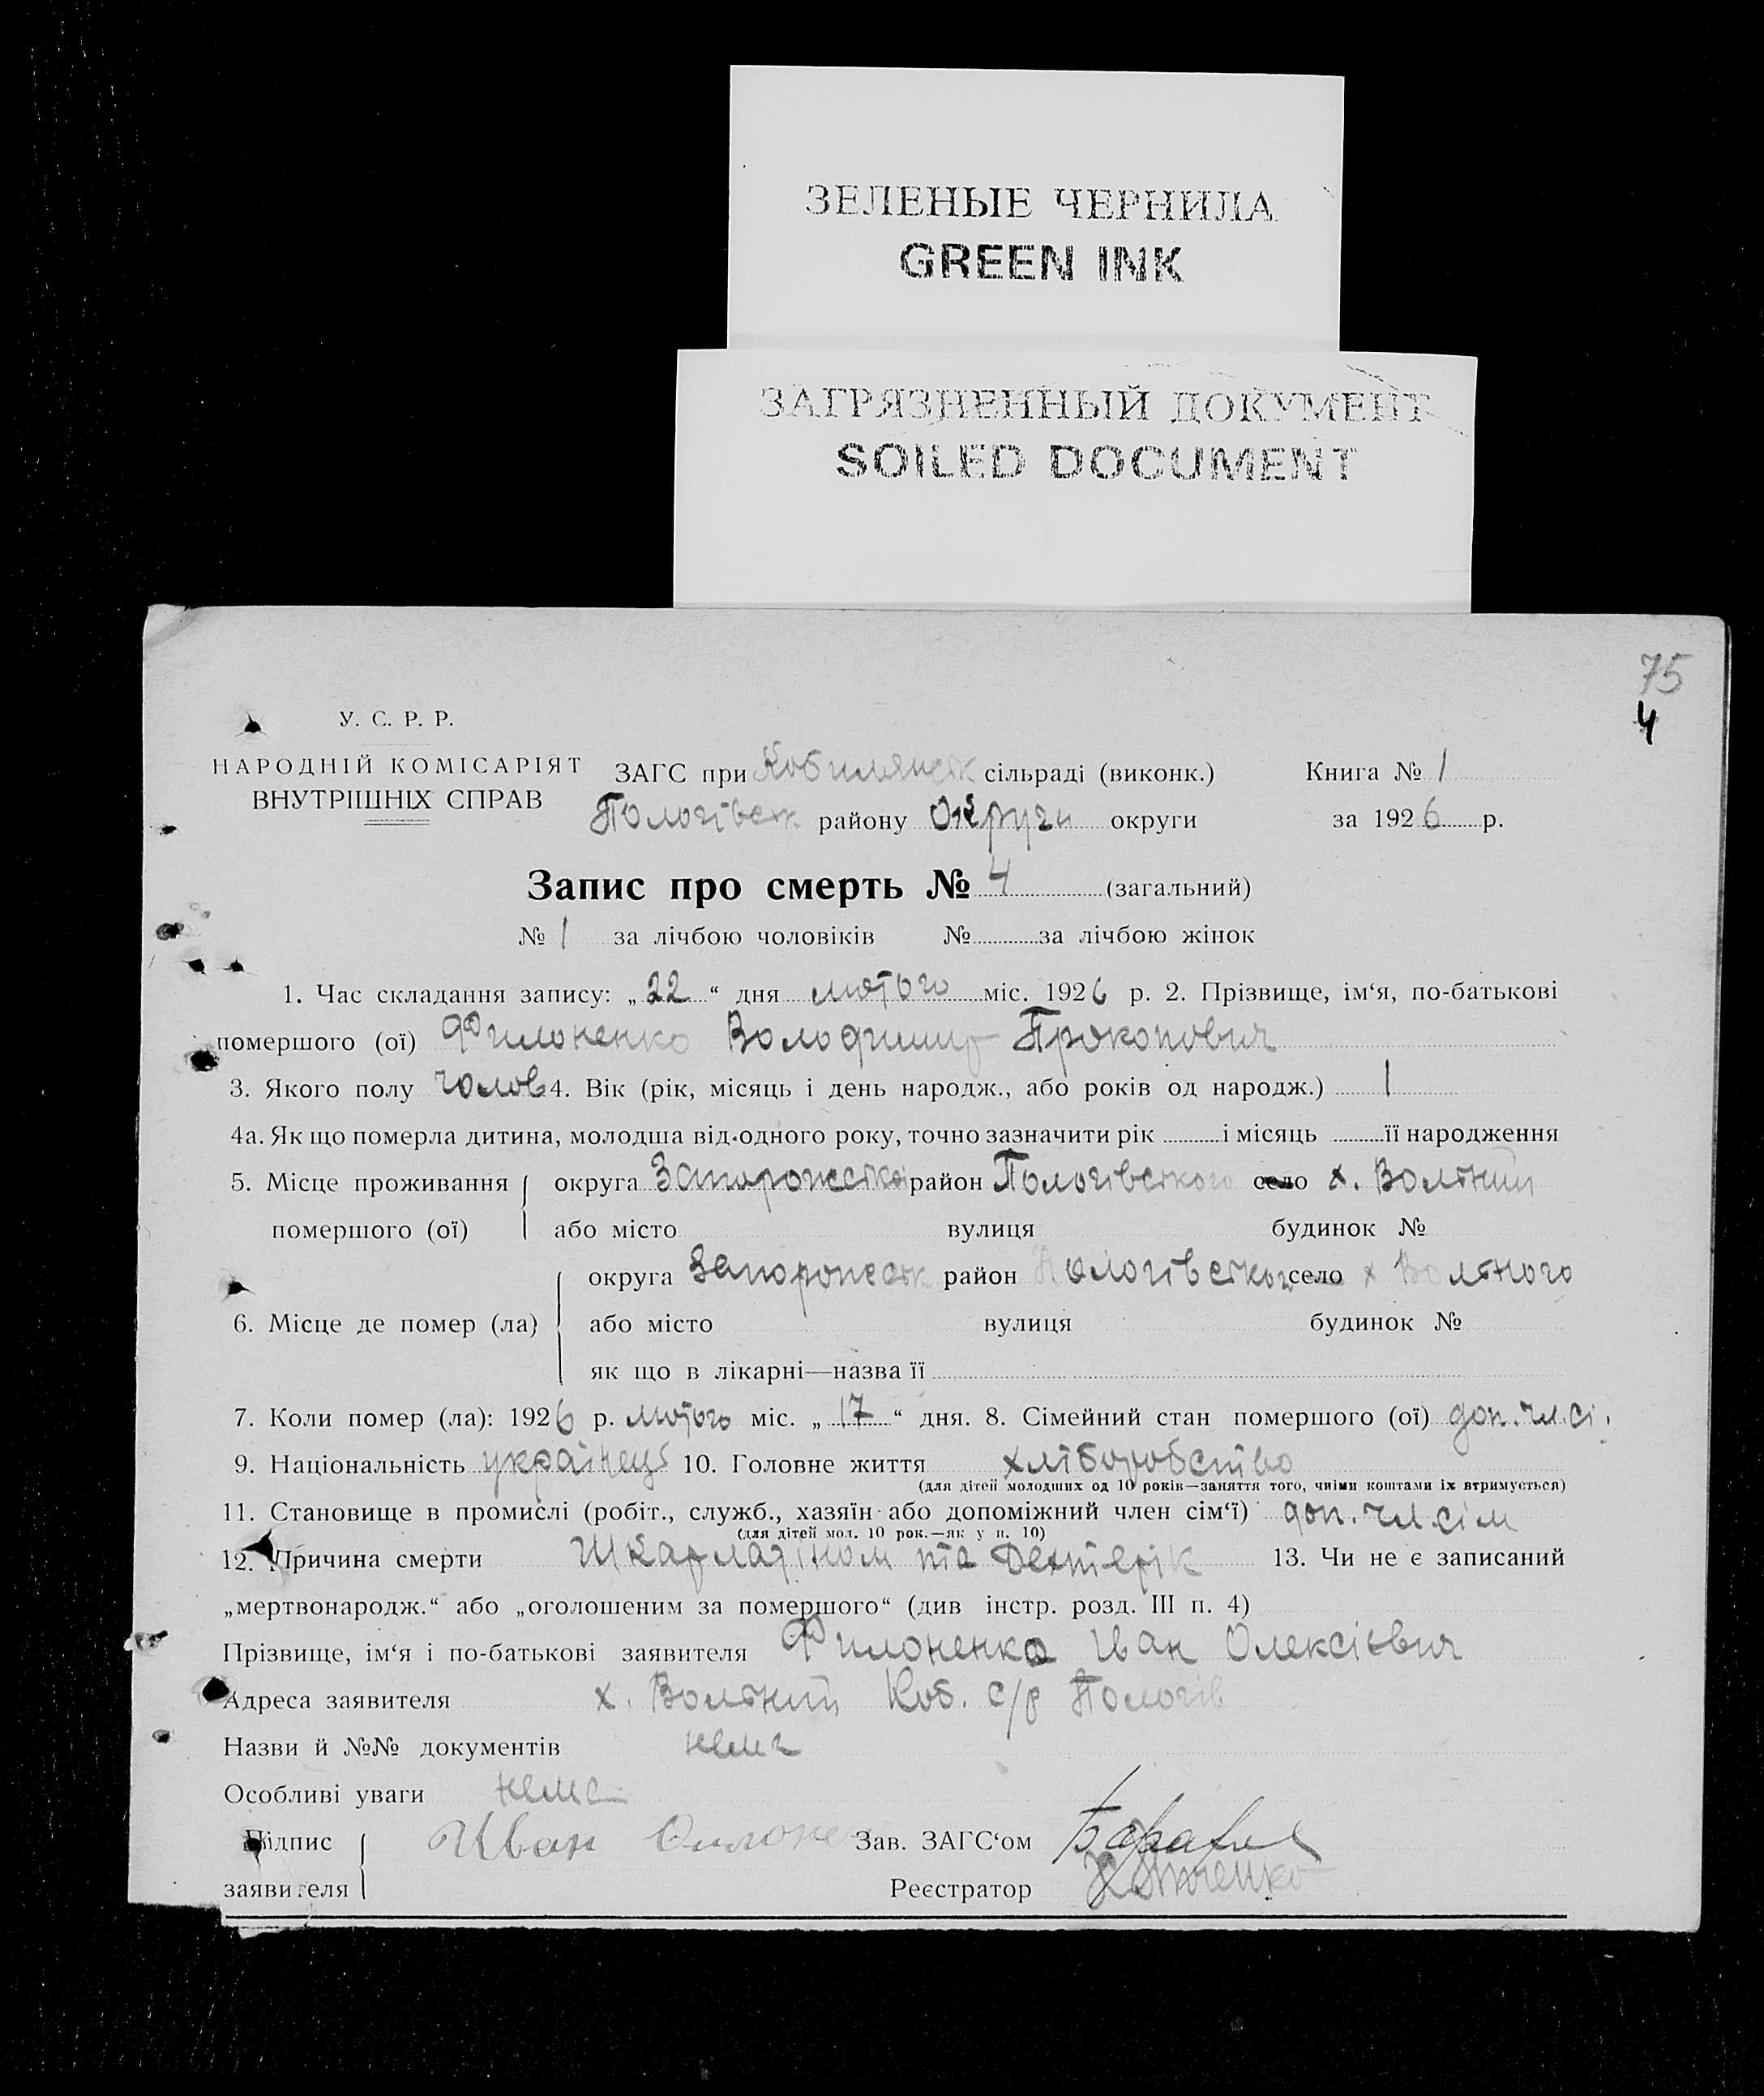 ЗЕЛЕНЫЕ ЧЕРНИЛА
GREEN INK
ЗАГРЯЗНЕННЫЙ ДОКУМЕНТ
SOILED DOCUMENT
75
4
У. С. Р. Р.
НАРОДНІЙ КОМІСАРІЯТ
ВНУТРІШНІХ СПРАВ
ЗАГС при Кобилянськ сільраді (виконк.) Книга № 1
Пологівськ району Округи округи за 1926 р.
Запис про смерть № 4 (загальний)
№ 1 за лічбою чоловіків № за лічбою жінок
1. Час складання запису: „22“ дня лютого міс. 1926 р. 2. Прізвище, ім‘я, по-батькові
помершого (ої) Филоненко Володимир Прокопович
3. Якого полу чолов 4. Вік (рік, місяць і день народж., або років од народж.) 1
4а. Як що померла дитина, молодша від одного року, точно зазначити рік і місяць її народження
5. Місце проживання округа Запорожської район Пологівського село х. Вольний
помершого (ої) або місто вулиця будинок №
округа Запорожськ район Пологівського село х Вольного
6. Місце де помер (ла) або місто вулиця будинок №
як що в лікарні—назва її
7. Коли помер (ла): 1926 р. лютого міс. „17“ дня. 8. Сімейний стан помершого (ої) доп. чл. сі.
9. Національність українець 10. Головне життя хліборобство
(для дітей молодших од 10 років—заняття того, чиїми коштами їх втримується)
11. Становище в промислі (робіт., служб., хазяїн або допоміжний член сім‘ї) доп. чл сім
(для дітей мол. 10 рок.—як у п. 10)
12. Причина смерти Шкарлатіном та Дехтерік 13. Чи не є записаний
„мертвонародж.“ або „оголошеним за помершого“ (див інстр. розд. III п. 4)
Прізвище, ім‘я і по-батькові заявителя Филоненко Іван Олексієвич
Адреса заявителя х. Вольний Коб. с/р Пологів
Назви й №№ документів нема
Особливі уваги нема
Підпис Иван Филоне Зав. ЗАГС‘ом
заявителя Реєстратор